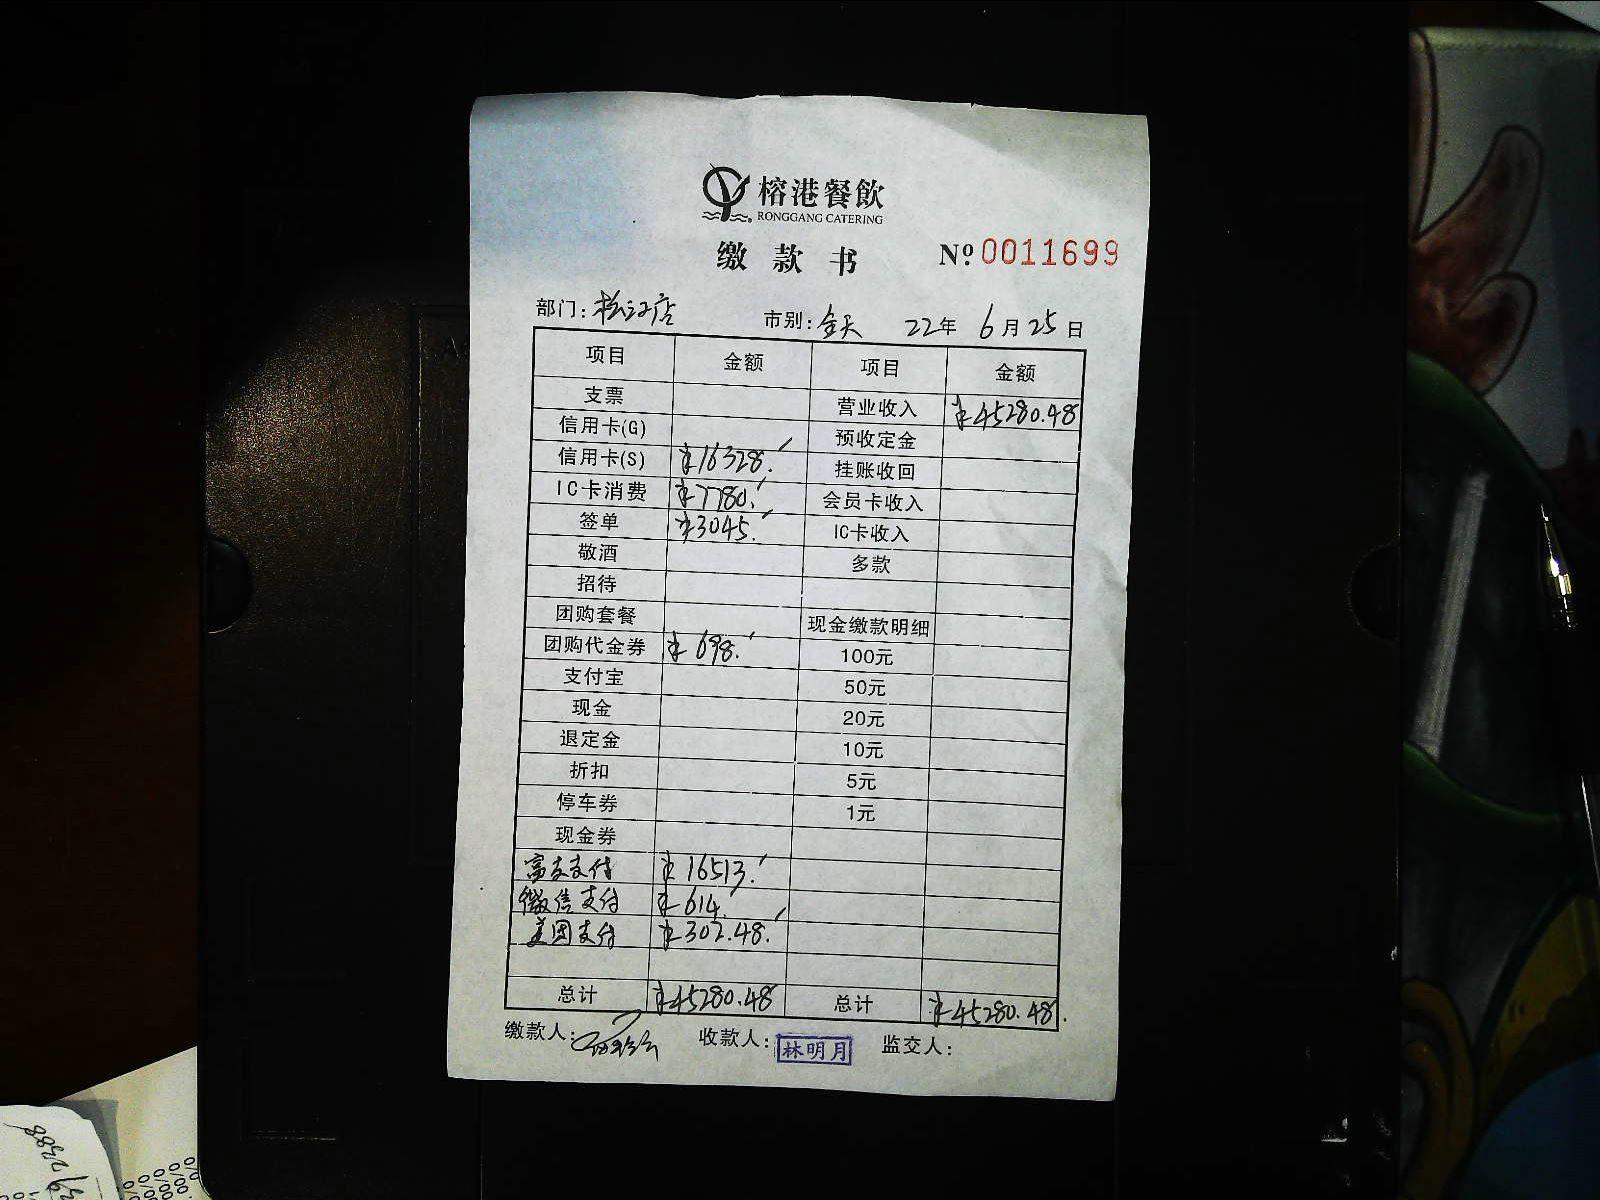 榕港餐飲
RONGGANG CATERING
缴款书 Nº 0011699
部门: 松江店 市别: 全天 22年 6月25日
项目 金额 项目 金额
支票 营业收入 ¥45280.48
信用卡(G) 预收定金
信用卡(S) ¥16328. 挂账收回
IC卡消费 ¥7780. 会员卡收入
签单 ¥3045. IC卡收入
敬酒 多款
招待
团购套餐 现金缴款明细
团购代金券 ¥698. 100元
支付宝 50元
现金 20元
退定金 10元
折扣 5元
停车券 1元
现金券
富友支付 ¥16513.
微信支付 ¥614.
美团支付 ¥302.48.
总计 ¥45280.48 总计 ¥45280.48.
缴款人: 收款人: 林明月 监交人: